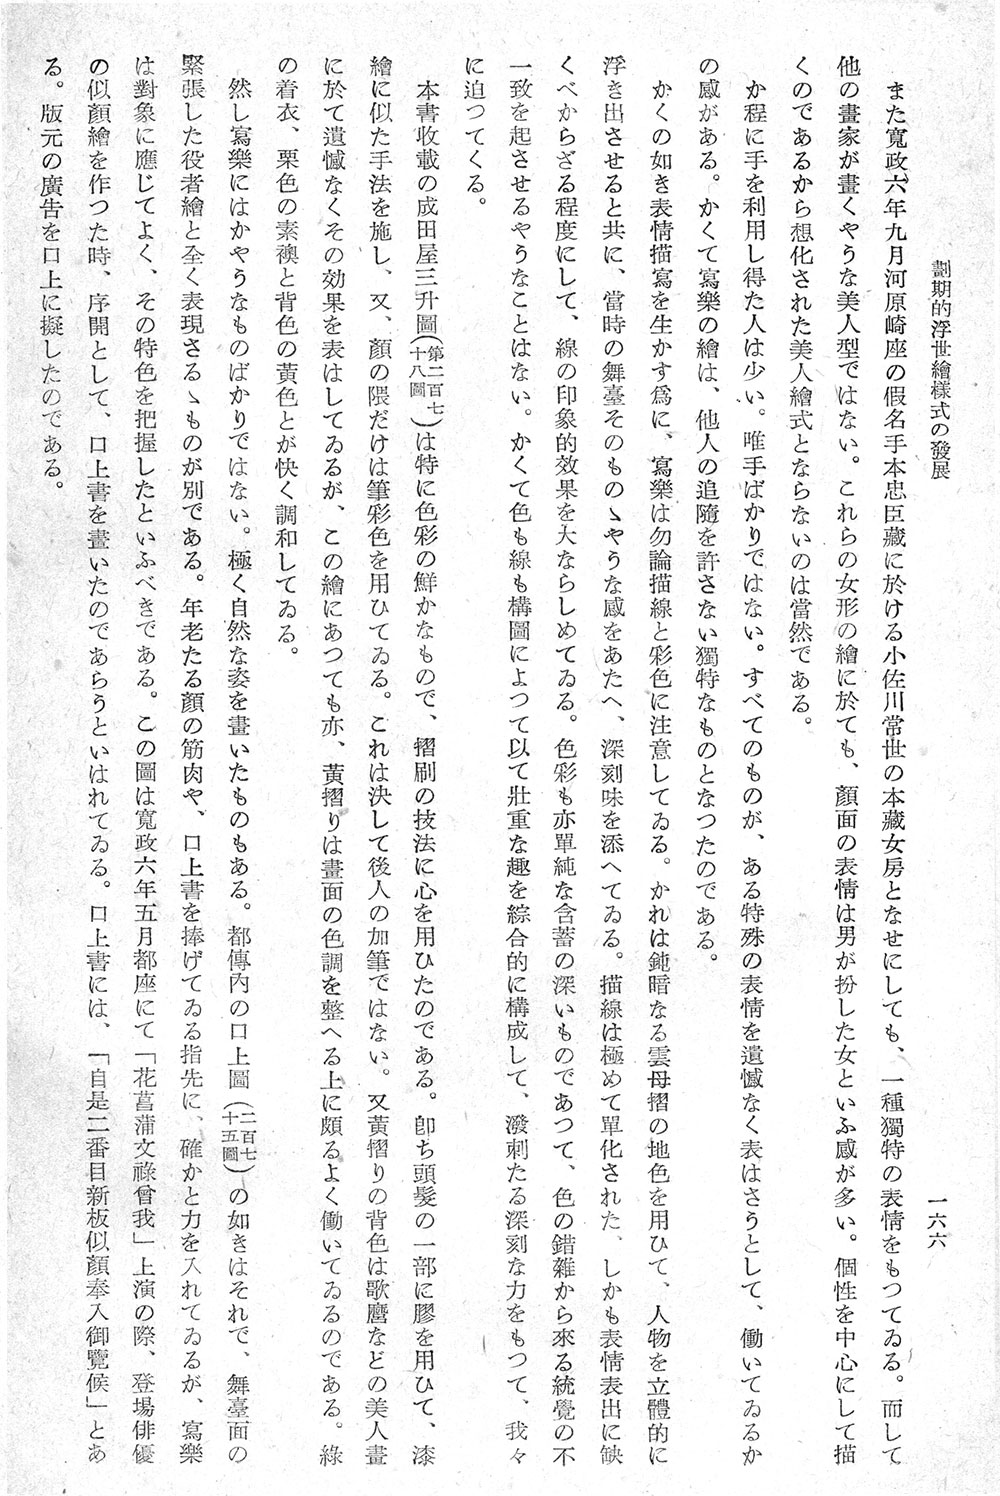 劃期的浮世繪樣式の發展
一六六
また寬政六年九月河原崎座の假名手本忠臣藏に於ける小佐川常世の本藏女房となせにしても、一種獨特の表情をもつてゐる。而して
他の畫家が畫くやうな美人型ではない。これらの女形の繪に於ても、顏面の表情は男が扮した女といふ感が多い。個性を中心にして描
くのであるから想化された美人繪式とならないのは當然である。
か程に手を利用し得た人は少い。唯手ばかりではない。すべてのものが、ある特殊の表情を遺憾なく表はさうとして、働いてゐるか
の感がある。かくて寫樂の繪は、他人の追隨を許さない獨特なものとなつたのである。
かくの如き表情描寫を生かす爲に、寫樂は勿論描線と彩色に注意してゐる。かれは鈍暗なる雲母摺の地色を用ひて、人物を立體的に
浮き出させると共に、當時の舞臺そのものゝやうな感をあたへ、深刻味を添へてゐる。描線は極めて單化された、しかも表情表出に缺
くべからざる程度にして、線の印象的效果を大ならしめてゐる。色彩も亦單純な含蓄の深いものであつて、色の錯雜から來る統覺の不
一致を起させるやうなことはない。かくて色も線も構圖によつて以て壯重な趣を綜合的に構成して、潑刺たる深刻な力をもつて、我々
に迫つてくる。
本書收載の成田屋三升圖(第二百七十八圖)は特に色彩の鮮かなもので、摺刷の技法に心を用ひたのである。卽ち頭髮の一部に膠を用ひて、漆
繪に似た手法を施し、又、顏の隈だけは筆彩色を用ひてゐる。これは決して後人の加筆ではない。又黃摺りの背色は歌麿などの美人畫
に於て遺憾なくその効果を表はしてゐるが、この繪にあつても亦、黃摺りは畫面の色調を整へる上に頗るよく働いてゐるのである。綠
の着衣、栗色の素襖と背色の黃色とが快く調和してゐる。
然し寫樂にはかやうなものばかりではない。極く自然な姿を畫いたものもある。都傳內の口上圖(二百七十五圖)の如きはそれで、舞臺面の
緊張した役者繪と全く表現さるゝものが別である。年老たる顏の筋肉や、口上書を捧げてゐる指先に、確かと力を入れてゐるが、寫樂
は對象に應じてよく、その特色を把握したといふべきである。この圖は寬政六年五月都座にて「花菖蒲文祿曾我」上演の際、登場俳優
の似顏繪を作つた時、序開として、口上書を畫いたのであらうといはれてゐる。口上書には、「自是二番目新板似顏奉入御覽候」とあ
る。版元の廣告を口上に擬したのである。